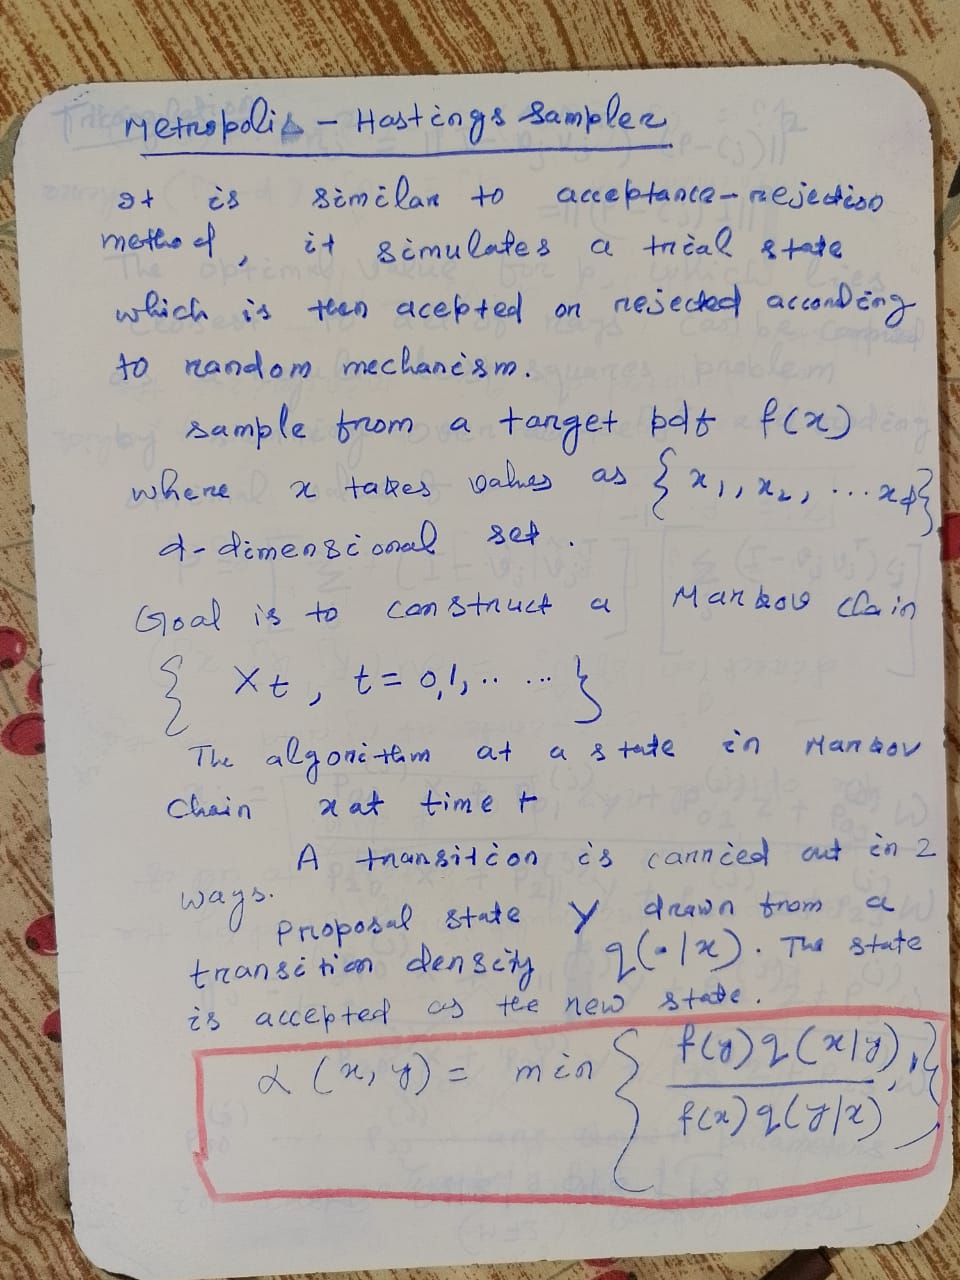 Metropolis - Hastings Sampler
It is similar to acceptance-rejection
method, it simulates a trial state
which is then acepted or rejected according
to random mechanism.
sample from a target pdf f(x)
where x takes values as { x1, x2, ... xd}
d-dimensional set.
Goal is to construct a Markov chain
{ Xt, t = 0,1, .. ... }
The algorithm at a state in Markov
Chain x at time t
A transition is carried out in 2
ways.
Proposal state Y drawn from a
transition density q(·|x). The state
is accepted as the new state.
α(x, y) = min { f(y) q(x|y) / f(x) q(y|x) , 1 }